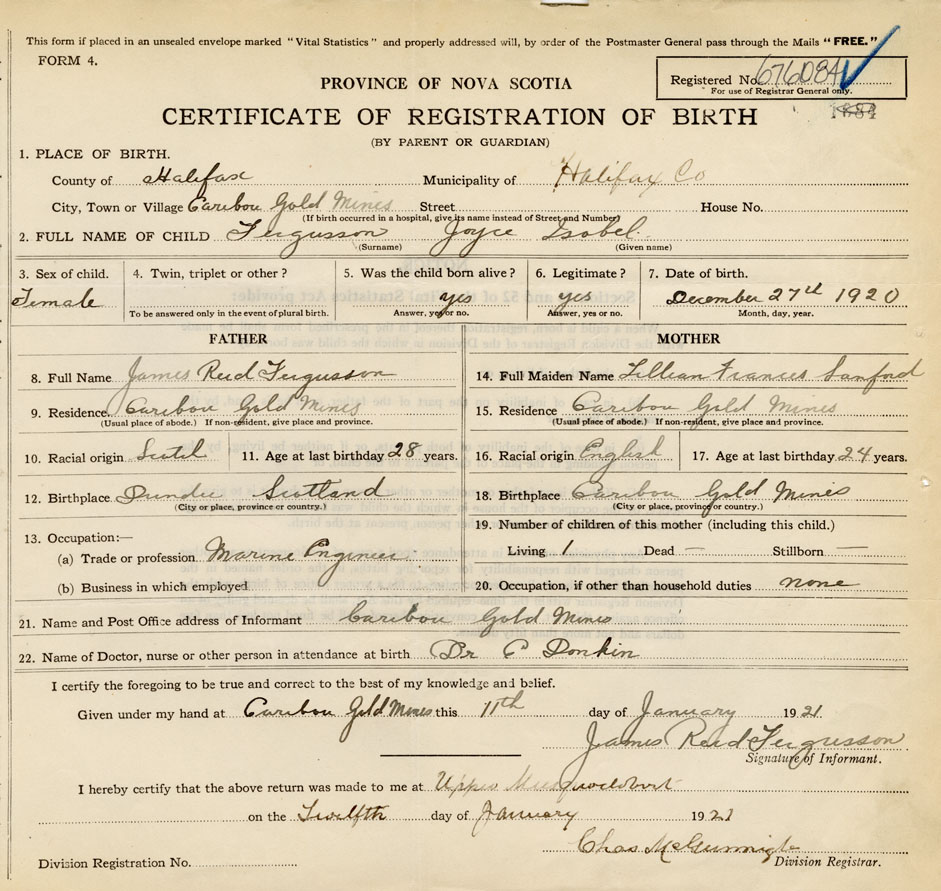 This form if placed in an unsealed envelope marked "Vital Statistics" and properly addressed will, by order of the Postmaster General pass through the Mails "FREE."
FORM 4.
Registered No. 676084
For use of Registrar General only.
PROVINCE OF NOVA SCOTIA
CERTIFICATE OF REGISTRATION OF BIRTH
(BY PARENT OR GUARDIAN)
1. PLACE OF BIRTH.
County of Halifax Municipality of Halifax Co
City, Town or Village Caribou Gold Mines Street House No.
(If birth occurred in a hospital, give its name instead of Street and Number)
2. FULL NAME OF CHILD Fergusson Joyce Isobel
(Surname) (Given name)
3. Sex of child. 4. Twin, triplet or other? 5. Was the child born alive? 6. Legitimate? 7. Date of birth.
Female yes yes December 27th 1920
To be answered only in the event of plural birth. Answer, yes or no. Answer, yes or no. Month, day, year.
FATHER
8. Full Name James Reid Fergusson
9. Residence. Caribou Gold Mines
(Usual place of abode.) If non-resident, give place and province.
10. Racial origin 11. Age at last birthday 28 years.
12. Birthplace Dundee Scotland
(City or place, province or country.)
13. Occupation:—
(a) Trade or profession Marine Engineer
(b) Business in which employed
MOTHER
14. Full Maiden Name Lillian Frances Sanford
15. Residence Caribou Gold Mines
(Usual place of abode.) If non-resident, give place and province.
16. Racial origin English 17. Age at last birthday 24 years.
18. Birthplace Caribou Gold Mines
(City or place, province or country.)
19. Number of children of this mother (including this child.)
Living 1 Dead — Stillborn —
20. Occupation, if other than household duties none
21. Name and Post Office address of Informant Caribou Gold Mines
22. Name of Doctor, nurse or other person in attendance at birth Dr C Donkin
I certify the foregoing to be true and correct to the best of my knowledge and belief.
Given under my hand at Caribou Gold Mines this 11th day of January 1921
James Reid Fergusson
Signature of Informant.
I hereby certify that the above return was made to me at Upper Musquodoboit
on the Twelfth day of January 1921
Chas
Division Registration No. Division Registrar.